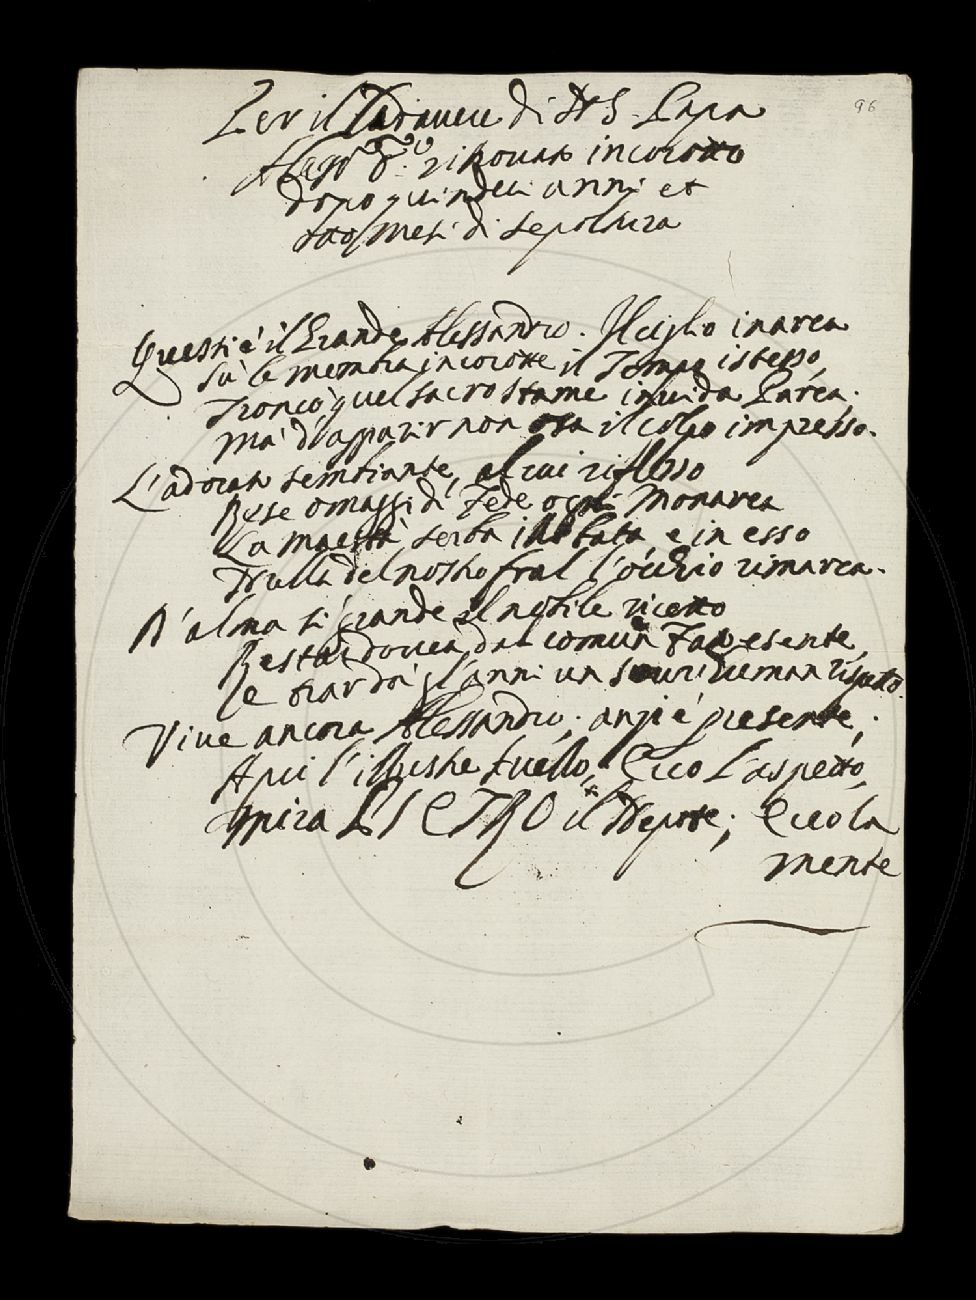 96
Per il Cadauere di N S. Papa
Aless.o 8.o ritrouato incorotto
dopo quindeci anni et
otto mesi di sepoltura
Questi è il Grande Alessandro. Il ciglio inarca
Sù le membra incorotte il Tempo istesso,
Troncò quel sacro stame inuida Parca.
Mà d'apparir non osa il colpo impresso.
L'adorato sembiante, al cui riflesso
Rese omaggi di Fede ogni Monarca
La maestà serba illibata e in esso
Nulla del nostro fral l'occhio rimarca.
D'alma sì grande il nobile ricetto
Restar douea dal comun Fato esente,
E portar dà gl'anni un souruman rispetto.
Viue ancora Alessandro, anzi è presente,
A pui l'illustre Auello, Ecco l'aspetto,
Mira PIETRO il Nepote; Ecco la
mente